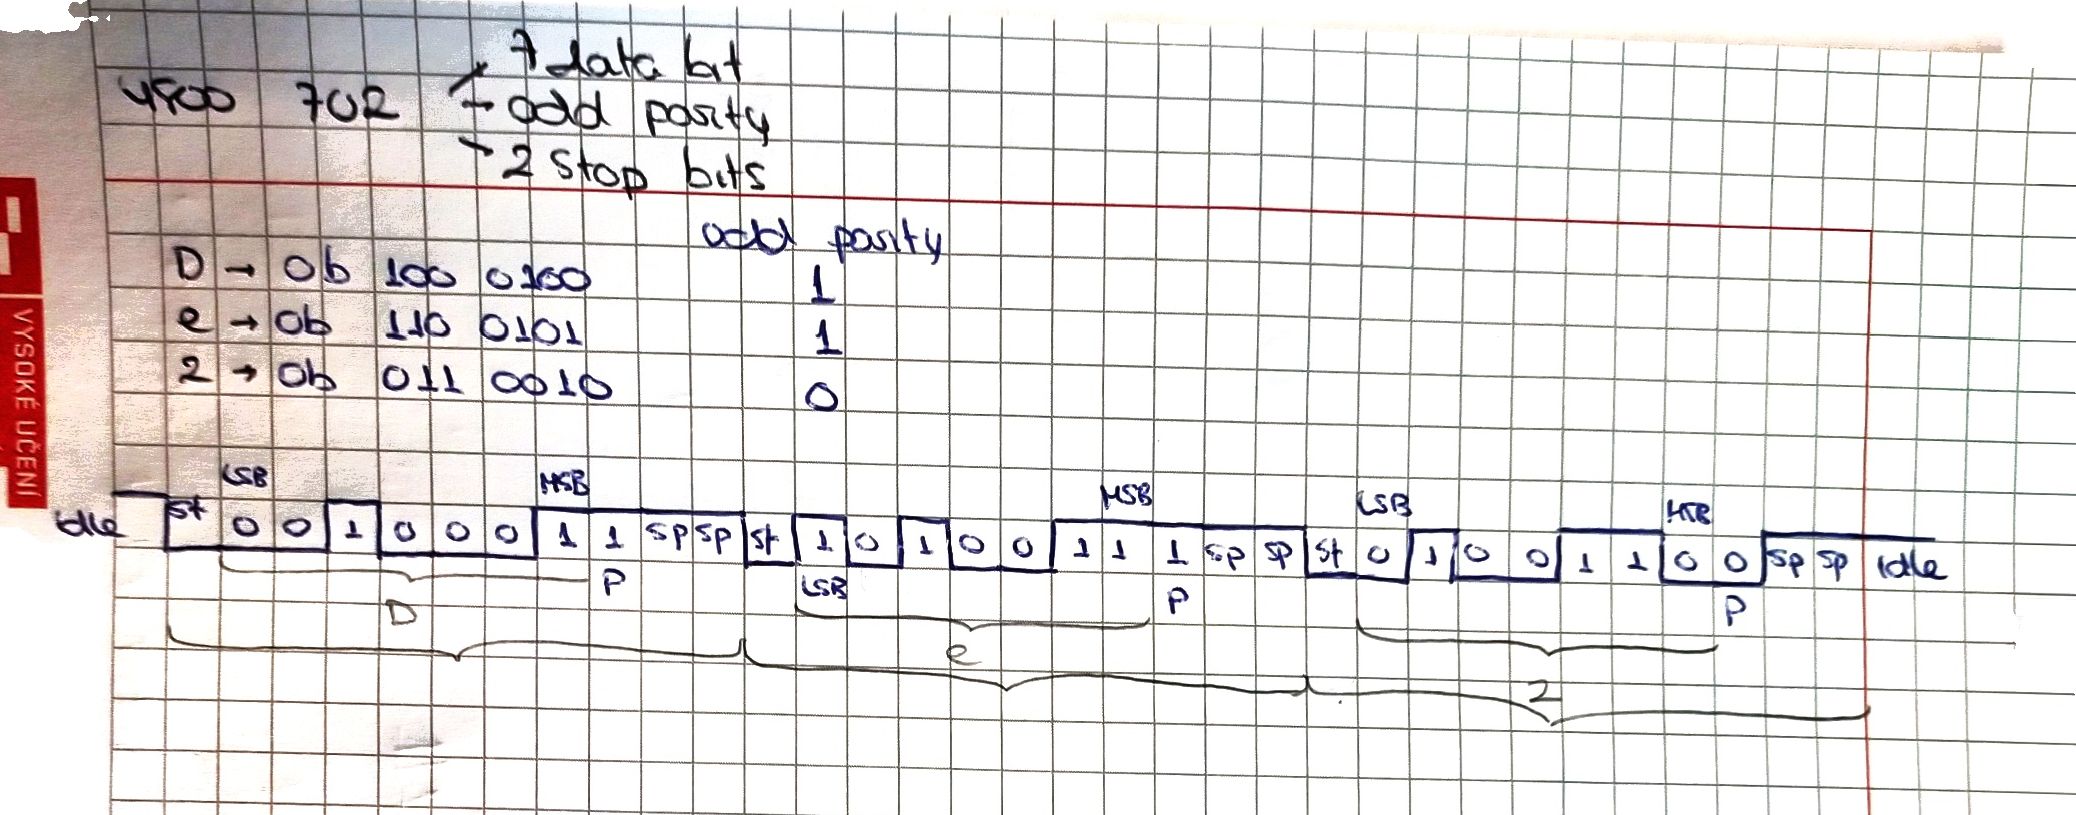 7 data bit
4800 7O2 odd parity
2 stop bits
odd parity
D → 0b 100 0100 1
e → 0b 110 0101 1
2 → 0b 011 0010 0
LSB MSB MSB LSB MSB
Idle St 0 0 1 0 0 0 1 1 sp sp St 1 0 1 0 0 1 1 1 sp sp St 0 1 0 0 1 1 0 0 sp sp Idle
P LSB P P
D e 2
VYSOKÉ UČENÍ